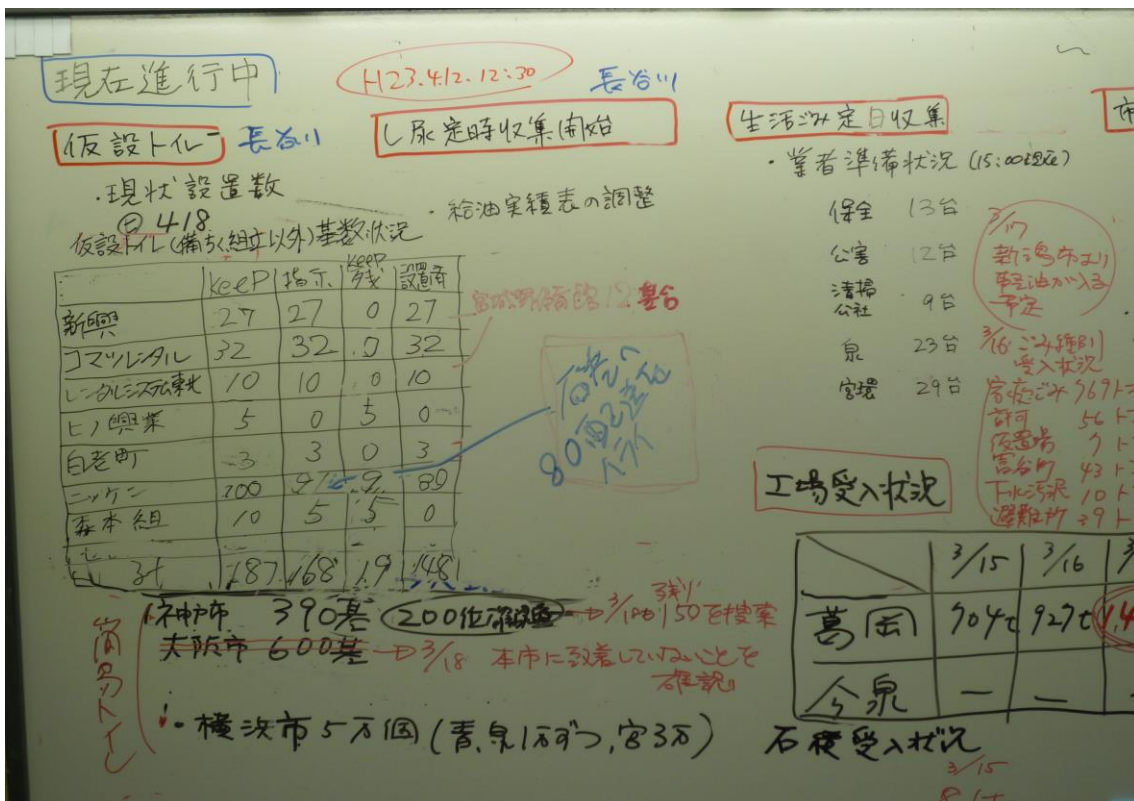 現在進行中
H23.4.12.12:30
長谷川
仮設トイレ
長谷川
し尿定時収集開始
・現状設置数
㊁ 418
・給油実績表の調整
仮設トイレ(備ちく組立以外)基数状況
keeP 指示 keeP残 設置済
新興 27 27 0 27
コマツレンタル 32 32 0 32
レンタルシステム東北 10 10 0 10
ヒノ興業 5 0 5 0
白老町 3 3 0 3
ニッケン 100 91 9
森本組 10 5 5 0
計 187 168 19 148
80面
簡易トイレ
神戸市 390基 200位
3/18 残り150を捜索
大阪市 600基 → 3/18 本市に到着していないことを
確認
・横浜市5万個(青,泉1万ずつ,宮3万)
生活ごみ定日収集
・業者準備状況(15:00現在)
保全 13台
公害 12台
清掃公社 9台
泉 23台
宮環 29台
3/17
新潟市より
軽油が入る
予定
3/16 ごみ種別
受入状況
家庭ごみ 769ト
許可 56ト
仮置場 7ト
富谷町 43ト
下水汚泥 10ト
避難所 39ト
工場受入状況
3/15 3/16
葛岡 704t 927t
今泉 — —
石積受入状況
3/15
市